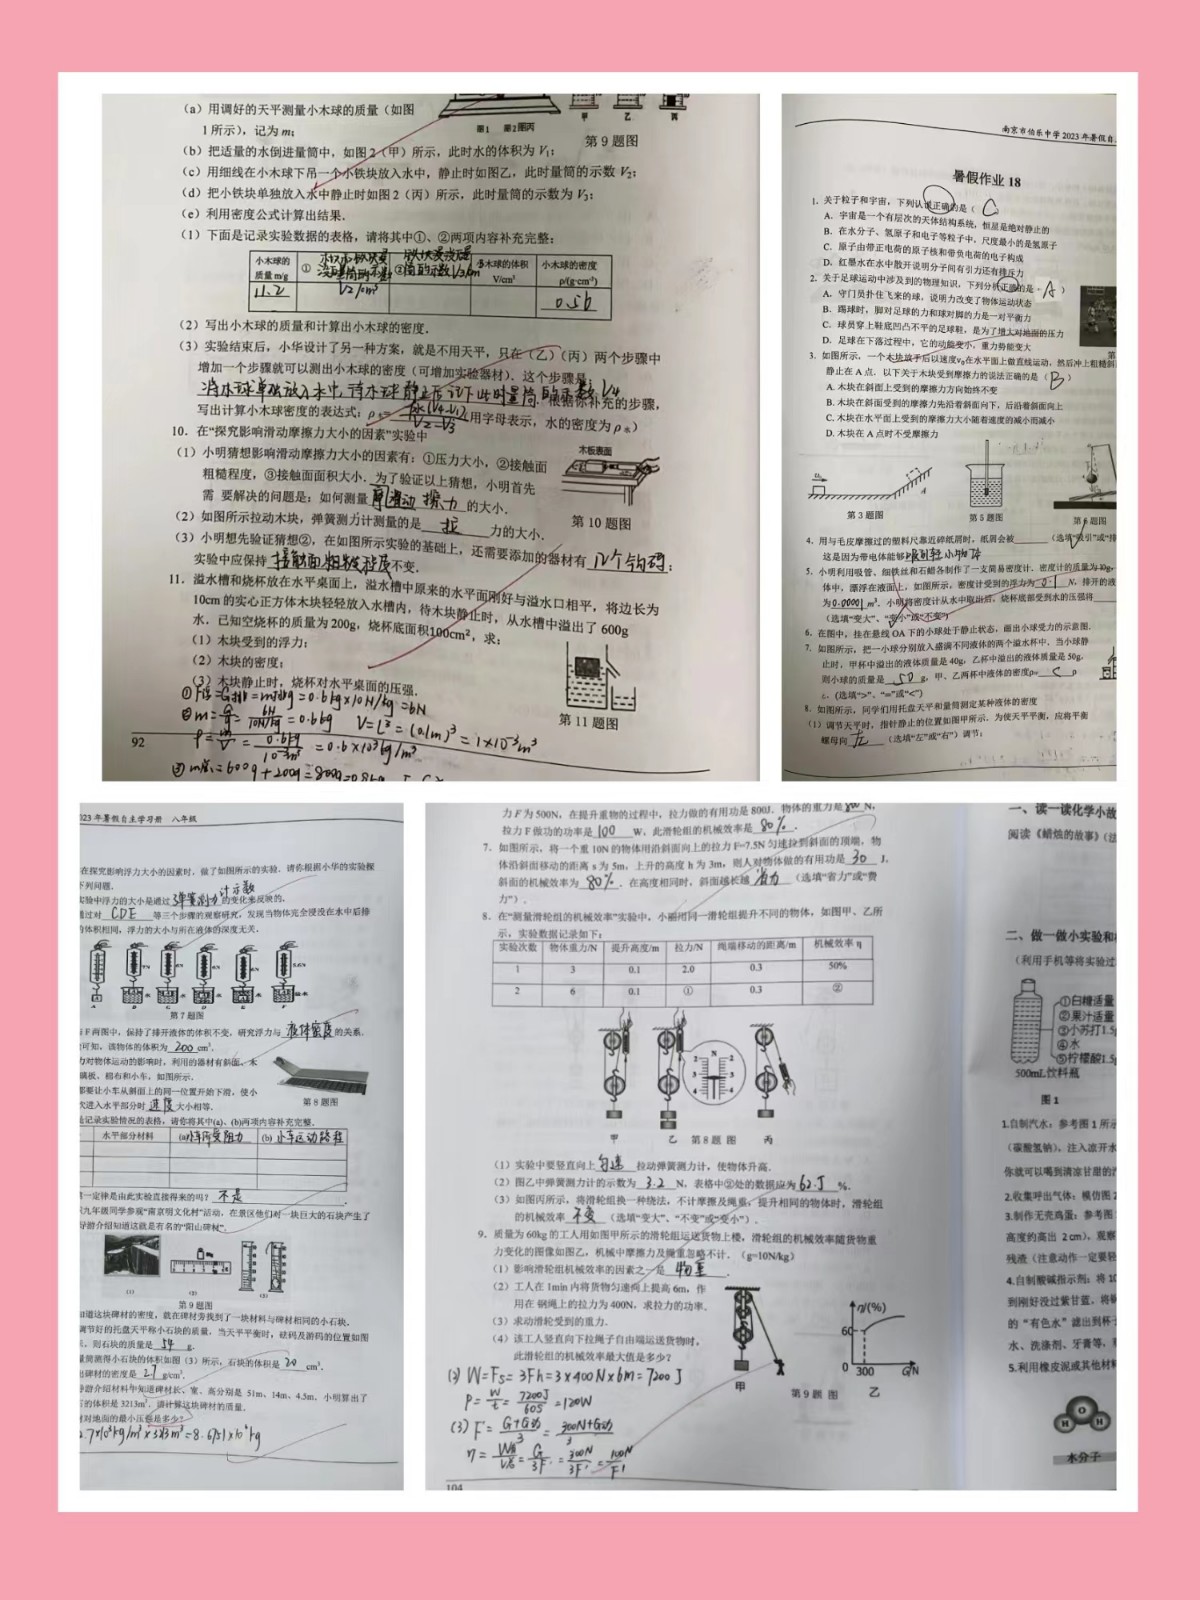 (a) 用调好的天平测量小木球的质量（如图
1所示），记为 m;
图1 图2图丙
甲 乙 丙
第 9 题图
(b) 把适量的水倒进量筒中，如图 2（甲）所示，此时水的体积为 V₁;
(c) 用细线在小木球下吊一个小铁块放入水中，静止时如图乙，此时量筒的示数 V₂;
(d) 把小铁块单独放入水中静止时如图 2（丙）所示，此时量筒的示数为 V₃;
(e) 利用密度公式计算出结果.
(1) 下面是记录实验数据的表格，请将其中①、②两项内容补充完整:
小木球的质量 m/g ① ② 小木球的体积 V/cm³ 小木球的密度 ρ/(g·cm⁻³)
11.2 0.56
(2) 写出小木球的质量和计算出小木球的密度.
(3) 实验结束后，小华设计了另一种方案，就是不用天平，只在（乙）（丙）两个步骤中
增加一个步骤就可以测出小木球的密度（可增加实验器材）. 这个步骤是
将木球单独放入水中，待木球静止后记下此时量筒的示数 V₄ . 根据你补充的步骤，
写出计算小木球密度的表达式: 用字母表示，水的密度为 ρ水）
10. 在“探究影响滑动摩擦力大小的因素”实验中
(1) 小明猜想影响滑动摩擦力大小的因素有: ①压力大小，②接触面
粗糙程度，③接触面面积大小. 为了验证以上猜想，小明首先
需 要解决的问题是: 如何测量 滑动摩擦力 的大小.
木板表面
第 10 题图
(2) 如图所示拉动木块，弹簧测力计测量的是 拉 力的大小.
(3) 小明想先验证猜想②，在如图所示实验的基础上，还需要添加的器材有 几个钩码;
实验中应保持 接触面粗糙程度 不变.
11. 溢水槽和烧杯放在水平桌面上，溢水槽中原来的水平面刚好与溢水口相平，将边长为
10cm 的实心正方体木块轻轻放入水槽内，待木块静止时，从水槽中溢出了 600g
水. 已知空烧杯的质量为 200g，烧杯底面积100cm²，求:
(1) 木块受到的浮力;
(2) 木块的密度;
(3) 木块静止时，烧杯对水平桌面的压强.
第 11 题图
① F浮=G排=m排g=0.6kg×10N/kg=6N
② m=G/g=6N/10N/kg=0.6kg V=L³=(0.1m)³=1×10⁻³m³
ρ=m/V=0.6kg/10⁻³m³=0.6×10³kg/m³
③ m总=600g+200g=800g=0.8kg
92
南京市伯乐中学 2023 年暑假自
暑假作业 18
1. 关于粒子和宇宙，下列认识正确的是（ C
A. 宇宙是一个有层次的天体结构系统，恒星是绝对静止的
B. 在水分子、氢原子和电子等粒子中，尺度最小的是氢原子
C. 原子由带正电荷的原子核和带负电荷的电子构成
D. 红墨水在水中散开说明分子间有引力还有排斥力
2. 关于足球运动中涉及到的物理知识，下列分析正确的是（ A ）
A. 守门员扑住飞来的球，说明力改变了物体运动状态
B. 踢球时，脚对足球的力和球对脚的力是一对平衡力
C. 球员穿上鞋底凹凸不平的足球鞋，是为了增大对地面的压力
D. 足球在下落过程中，它的动能变小，重力势能变大
3. 如图所示，一个木块放手后以速度v₀在水平面上做直线运动，然后冲上粗糙斜
静止在 A 点. 以下关于木块受到摩擦力的说法正确的是（ B ）
A. 木块在斜面上受到的摩擦力方向始终不变
B. 木块在斜面受到的摩擦力先沿着斜面向下，后沿着斜面向上
C. 木块在水平面上受到的摩擦力大小随着速度的减小而减小
D. 木块在 A 点时不受摩擦力
第 3 题图 第 5 题图 第 6 题图
4. 用与毛皮摩擦过的塑料尺靠近碎纸屑时，纸屑会被 （选填“吸引”或“排
这是因为带电体能够 吸引轻小物体
5. 小明利用吸管、细铁丝和石蜡各制作了一支简易密度计. 密度计的质量为 10g,
体中，漂浮在液面上，如图所示，密度计受到的浮力为 0.1 N，排开的液
为 0.00001 m³. 小明将密度计从水中取出后，烧杯底部受到水的压强将
（选填“变大”、“变小”或“不变”）
6. 在图中，挂在悬线 OA 下的小球处于静止状态，画出小球受力的示意图.
7. 如图所示，把一小球分别放入盛满不同液体的两个溢水杯中，当小球静
止时，甲杯中溢出的液体质量是 40g，乙杯中溢出的液体质量是 50g,
则小球的质量是 50 g，甲、乙两杯中液体的密度ρ甲 < ρ
乙. （选填“>”、“=”或“<”）
8. 如图所示，同学们用托盘天平和量筒测定某种液体的密度
(1) 调节天平时，指针静止的位置如图甲所示. 为使天平平衡，应将平衡
螺母向 左 （选填“左”或“右”）调节;
023 年暑假自主学习册 八年级
在探究影响浮力大小的因素时，做了如图所示的实验. 请你根据小华的实验探
下列问题.
实验中浮力的大小是通过 弹簧测力计示数 的变化来反映的.
通过对 CDE 等三个步骤的观察研究，发现当物体完全浸没在水中后排
的体积相同，浮力的大小与所在液体的深度无关.
A B C D E F
第 7 题图
F 两图中，保持了排开液体的体积不变，研究浮力与 液体密度 的关系.
可知，该物体的体积为 200 cm³.
力对物体运动的影响时，利用的器材有斜面、木
璃板、棉布和小车，如图所示.
都要让小车从斜面上的同一位置开始下滑，使小
次进入水平部分时 速度 大小相等.
第 8 题图
是记录实验情况的表格，请你将其中(a)、(b)两项内容补充完整.
水平部分材料 (a)小车所受阻力 (b)小车运动路程
一定律是由此实验直接得来的吗？ 不是
九年级同学参观“南京明文化村”活动，在景区他们对一块巨大的石块产生了
导游介绍知道这就是有名的“阳山碑材”.
(1) (2) (3)
第 9 题图
知道这块碑材的密度，就在碑材旁找到了一块材料与碑材相同的小石块.
调节好的托盘天平称小石块的质量. 当天平平衡时，砝码及游码的位置如图
则石块的质量是 54 g.
量筒测得小石块的体积如图（3）所示，石块的体积是 20 cm³.
出碑材的密度是 2.7 g/cm³.
导游介绍材料中知道碑材长、宽、高分别是 51m、14m、4.5m，小明算出了
的体积是 3213m³. 请计算这块碑材的质量.
材对地面的最小压强是多少？
2.7×10³kg/m³×3213m³=8.6751×10⁶kg
力 F 为 500N，在提升重物的过程中，拉力做的有用功是 800J. 物体的重力是 800 N,
拉力 F 做功的功率是 100 W，此滑轮组的机械效率是 80%.
7. 如图所示，将一个重 10N 的物体用沿斜面向上的拉力 F=7.5N 匀速拉到斜面的顶端，物
体沿斜面移动的距离 s 为 5m，上升的高度 h 为 3m，则人对物体做的有用功是 30 J.
斜面的机械效率为 80%. 在高度相同时，斜面越长越 省力 （选填“省力”或“费
力”）.
8. 在“测量滑轮组的机械效率”实验中，小丽用同一滑轮组提升不同的物体，如图甲、乙所
示，实验数据记录如下:
实验次数 物体重力/N 提升高度/m 拉力/N 绳端移动的距离/m 机械效率 η
1 3 0.1 2.0 0.3 50%
2 6 0.1 ① 0.3 ②
甲 乙 第 8 题 图 丙
(1) 实验中要竖直向上 匀速 拉动弹簧测力计，使物体升高.
(2) 图乙中弹簧测力计的示数为 3.2 N，表格中②处的数据应为 62.5 %.
(3) 如图丙所示，将滑轮组换一种绕法，不计摩擦及绳重，提升相同的物体时，滑轮组
的机械效率 不变 （选填“变大”、“不变”或“变小”）.
9. 质量为 60kg 的工人用如图甲所示的滑轮组运送货物上楼，滑轮组的机械效率随货物重
力变化的图像如图乙，机械中摩擦力及绳重忽略不计. （g=10N/kg）
(1) 影响滑轮组机械效率的因素之一是 物重 .
(2) 工人在 1min 内将货物匀速向上提高 6m，作
用在 钢绳上的拉力为 400N，求拉力的功率.
(3) 求动滑轮受到的重力.
(4) 该工人竖直向下拉绳子自由端运送货物时，
此滑轮组的机械效率最大值是多少？
η/(%) 60 0 300 G/N
甲 第 9 题 图 乙
(2) W=Fs=3Fh=3×400N×6m=7200J
P=W/t=7200J/60s=120W
(3) F=G+G动/3=300N+G动/3
104
一、读一读化学小故
阅读《蜡烛的故事》（法
二、做一做小实验和
（利用手机等将实验过
①白糖适量
②果汁适量
③小苏打1.5g
④水
⑤柠檬酸1.5g
500mL饮料瓶
图 1
1.自制汽水: 参考图 1 所示
（碳酸氢钠）、注入凉开水
你就可以喝到清凉甘甜的汽
2.收集呼出气体: 模仿图 2
3.制作无壳鸡蛋: 参考图
高度约高出 2 cm），观察
残渣（注意动作一定要轻
4.自制酸碱指示剂: 将 10
到刚好没过紫甘蓝. 将
的 “有色水” 滤出到杯
水、洗涤剂、牙膏等，
5.利用橡皮泥或其他材料
H O H
水分子